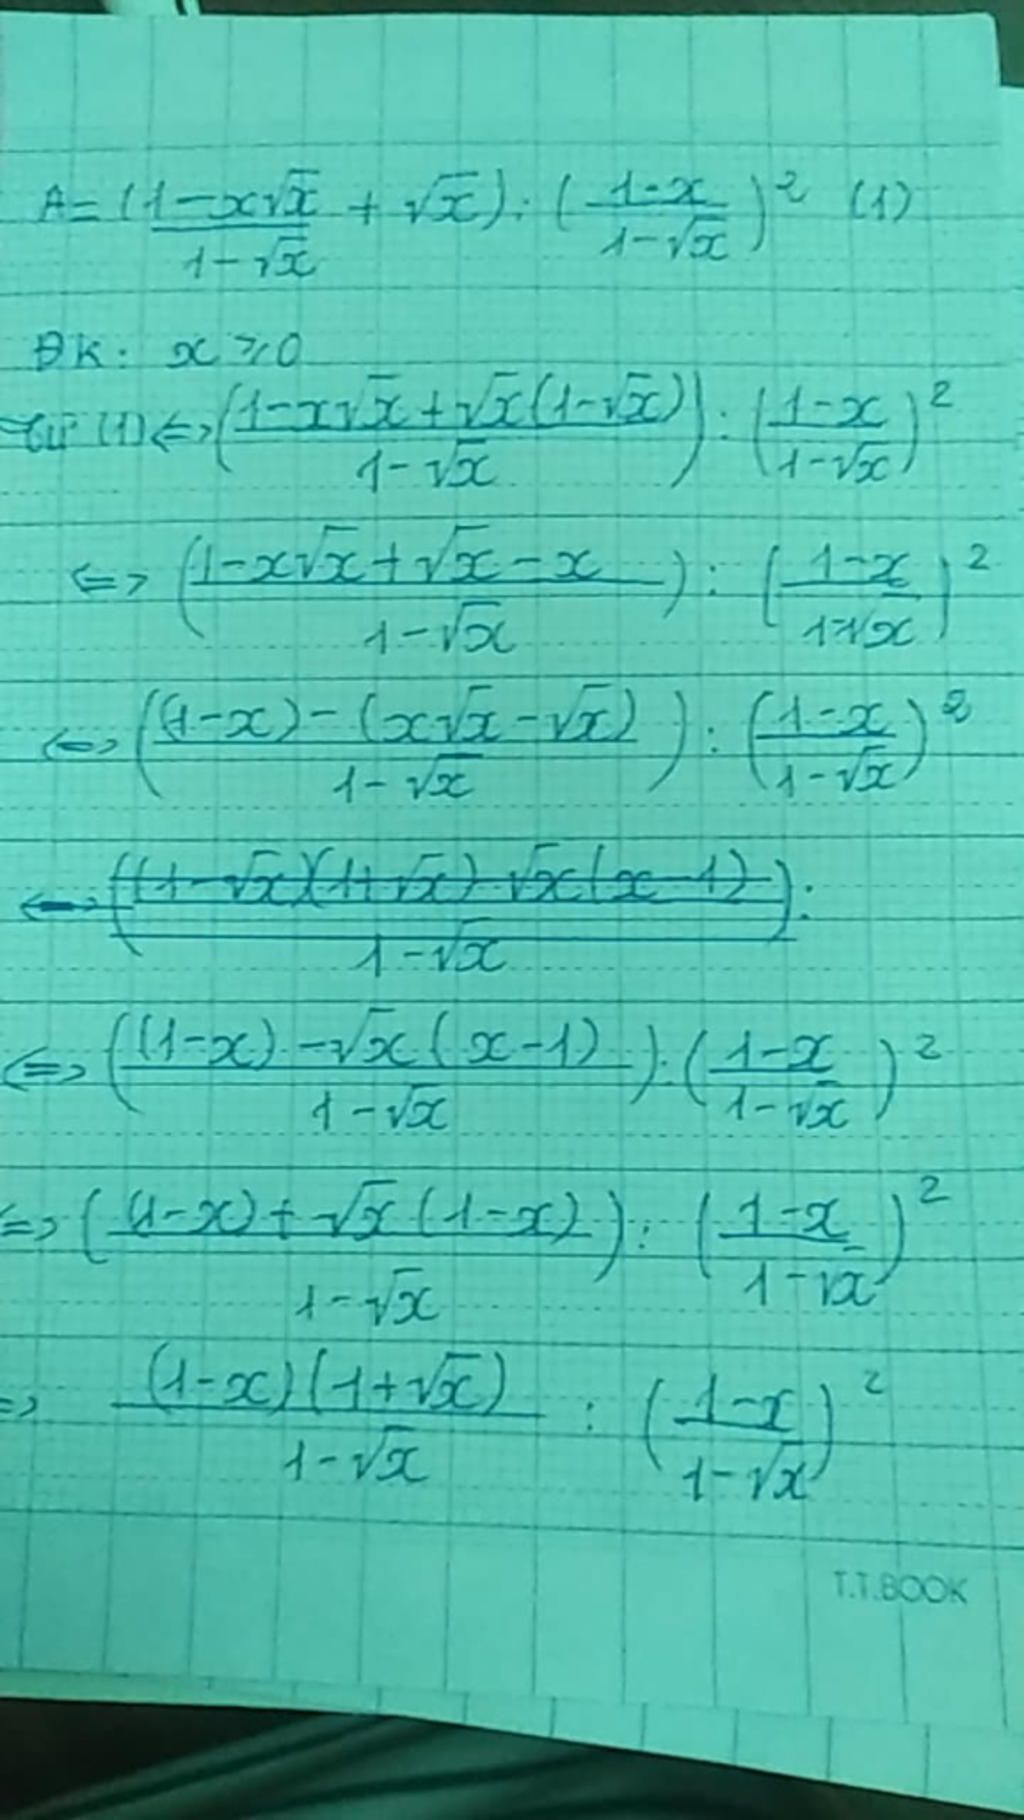 A = (\frac{1-x\sqrt{x}}{1-\sqrt{x}} + \sqrt{x}) : (\frac{1-x}{1-\sqrt{x}})^2 (1)
ĐK: x ≥ 0
Từ (1) <=> (\frac{1-x\sqrt{x}+\sqrt{x}(1-\sqrt{x})}{1-\sqrt{x}}) : (\frac{1-x}{1-\sqrt{x}})^2
<=> (\frac{1-x\sqrt{x}+\sqrt{x}-x}{1-\sqrt{x}}) : (\frac{1-x}{1-\sqrt{x}})^2
<=> (\frac{(1-x)-(x\sqrt{x}-\sqrt{x})}{1-\sqrt{x}}) : (\frac{1-x}{1-\sqrt{x}})^2
<=> (\frac{(1-\sqrt{x})(1+\sqrt{x})-\sqrt{x}(x-1)}{1-\sqrt{x}}) :
<=> (\frac{(1-x)-\sqrt{x}(x-1)}{1-\sqrt{x}}) : (\frac{1-x}{1-\sqrt{x}})^2
=> (\frac{(1-x)+\sqrt{x}(1-x)}{1-\sqrt{x}}) : (\frac{1-x}{1-\sqrt{x}})^2
=> \frac{(1-x)(1+\sqrt{x})}{1-\sqrt{x}} : (\frac{1-x}{1-\sqrt{x}})^2
T.T.BOOK